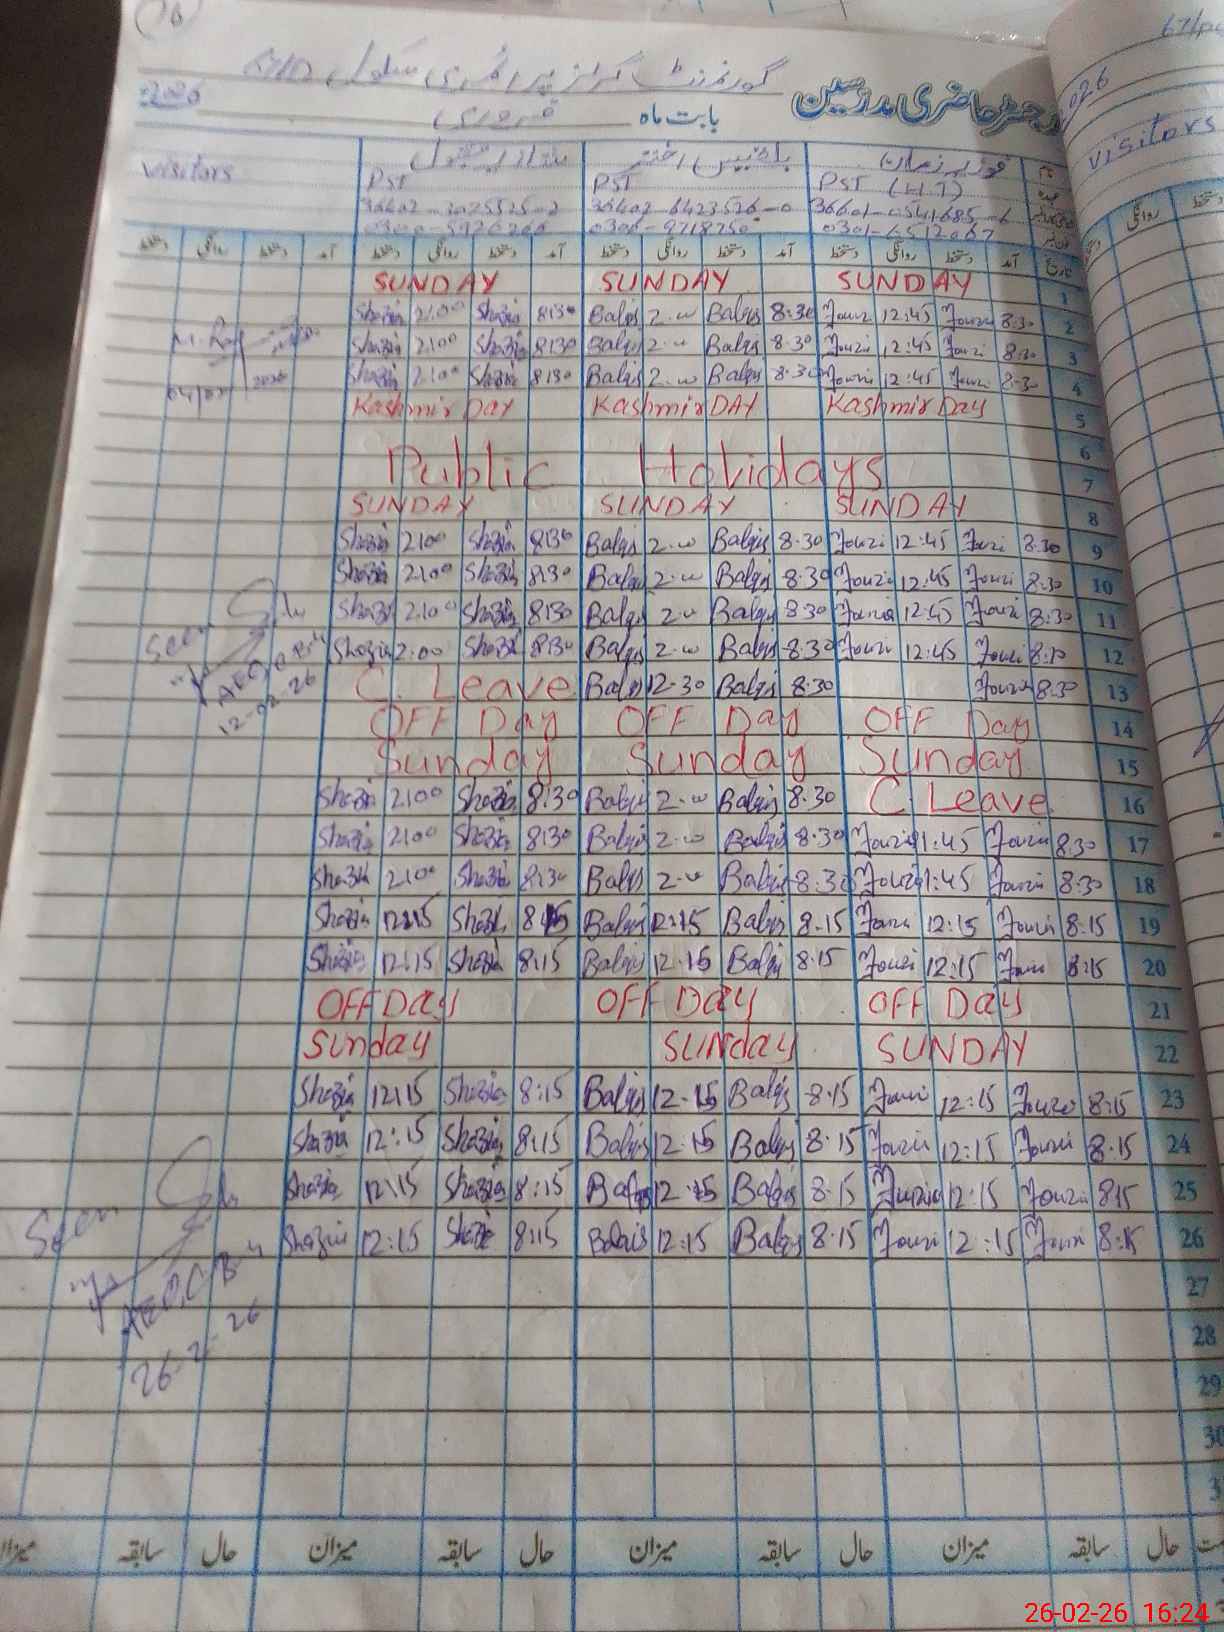 رجسٹر حاضری مدرسین
گورنمنٹ گرلز پرائمری سکول
بابت ماہ فروری 2026
visitors
PST PST PST (H.T)
SUNDAY SUNDAY SUNDAY 1
Shazia 2:00 Shazia 8:30 Balqis 2.00 Balqis 8:30 Fouzi 12:45 Fouzi 8:30 2
Shazia 2:00 Shazia 8:30 Balqis 2.00 Balqis 8.30 Fouzi 12:45 Fouzi 8:30 3
Shazia 2:00 Shazia 8:30 Balqis 2.00 Balqis 8.30 Fouzi 12:45 Fouzi 8.30 4
Kashmir DAY Kashmir DAY Kashmir Day 5
6
Public Holidays 7
SUNDAY SUNDAY SUNDAY 8
Shazia 2:00 Shazia 8:30 Balqis 2.00 Balqis 8.30 Fouzi 12:45 Fouzi 8.30 9
Shazia 2:00 Shazia 8:30 Balqis 2.00 Balqis 8.30 Fouzi 12:45 Fouzi 8:30 10
Shazia 2:00 Shazia 8:30 Balqis 2.00 Balqis 8.30 Fouzia 12:45 Fouzi 8:30 11
Shazia 2:00 Shazia 8:30 Balqis 2.00 Balqis 8.30 Fouzi 12:45 Fouzi 12
C. Leave Balqis 12-30 Balqis 8.30 Fouzia 8.30 13
OFF Day OFF Day OFF Day 14
Sunday Sunday Sunday 15
Shazia 2:00 Shazia 8:30 Balqis 2.00 Balqis 8.30 C. Leave 16
Shazia 2:00 Shazia 8:30 Balqis 2.00 Balqis 8.30 Fouzia 1:45 Fouzia 8:30 17
Shazia 2:00 Shazia 8:30 Balqis 2.00 Balqis 8.30 Fouzia 1:45 Fouzia 8:30 18
Shazia 12:15 Shazia 8:15 Balqis 12:15 Balqis 8.15 Fouzi 12:15 Fouzi 8:15 19
Shazia 12:15 Shazia 8:15 Balqis 12.15 Balqis 8.15 Fouzi 12:15 Fouzi 8:15 20
OFF Day OFF Day OFF Day 21
Sunday SUNday SUNDAY 22
Shazia 12:15 Shazia 8:15 Balqis 12.15 Balqis 8.15 Fouzi 12:15 Fouzi 8:15 23
Shazia 12:15 Shazia 8:15 Balqis 12.15 Balqis 8.15 Fouzi 12:15 Fouzi 8.15 24
Shazia 12:15 Shazia 8:15 Balqis 12.15 Balqis 8.15 Fouzia 12:15 Fouzi 8:15 25
Shazia 12:15 Shazia 8:15 Balqis 12:15 Balqis 8.15 Fouzi 12:15 Fouzi 8:15 26
27
28
29
30
Seen
12-02-26
Seen
26-2-26
میزان سابقہ حال میزان سابقہ حال میزان سابقہ حال
visitors
26-02-26 16:24